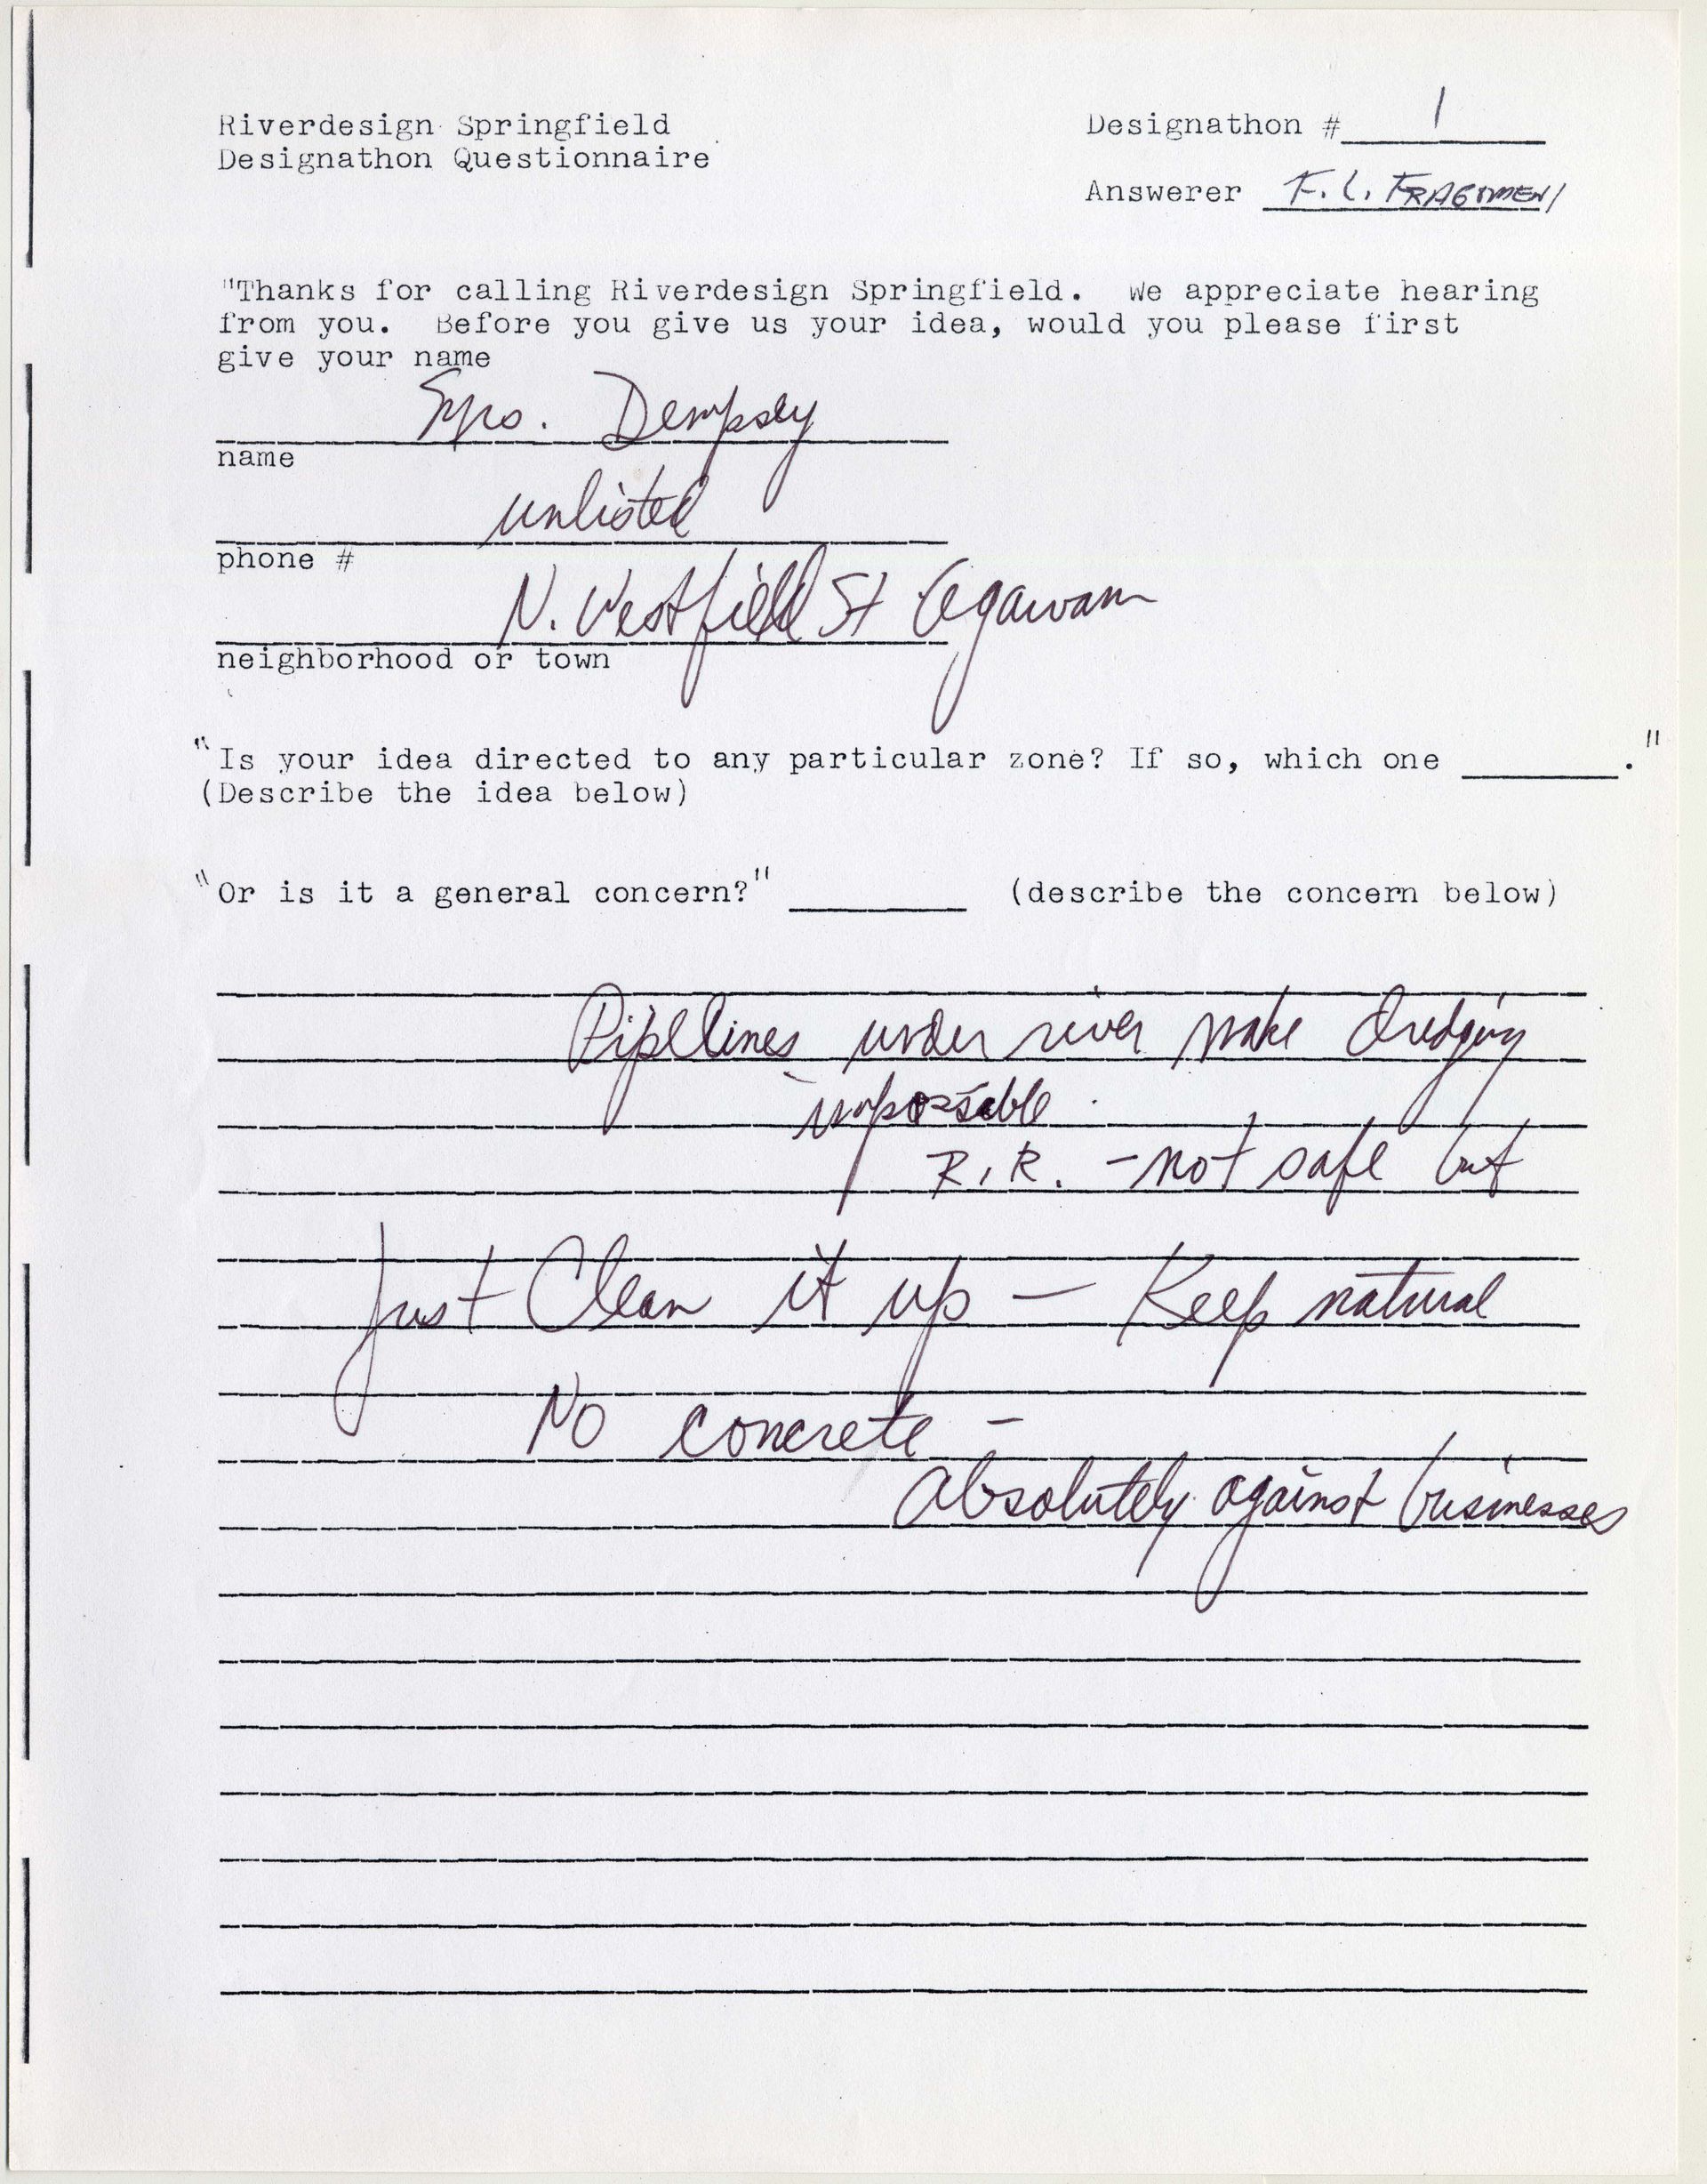 Riverdesign Springfield
Designathon Questionnaire
Designathon # 1
Answerer F. L. FRAGOMENI
"Thanks for calling Riverdesign Springfield. We appreciate hearing
from you. Before you give us your idea, would you please first
give your name
Mrs. Dempsey
name
unlisted
phone #
N. Westfield St Agawam
neighborhood or town
"Is your idea directed to any particular zone? If so, which one ."
(Describe the idea below)
"Or is it a general concern?" (describe the concern below)
Pipelines under river make dredging
impossible.
R.R. - not safe but
Just Clean it up — Keep natural
No concrete -
Absolutely against businesses